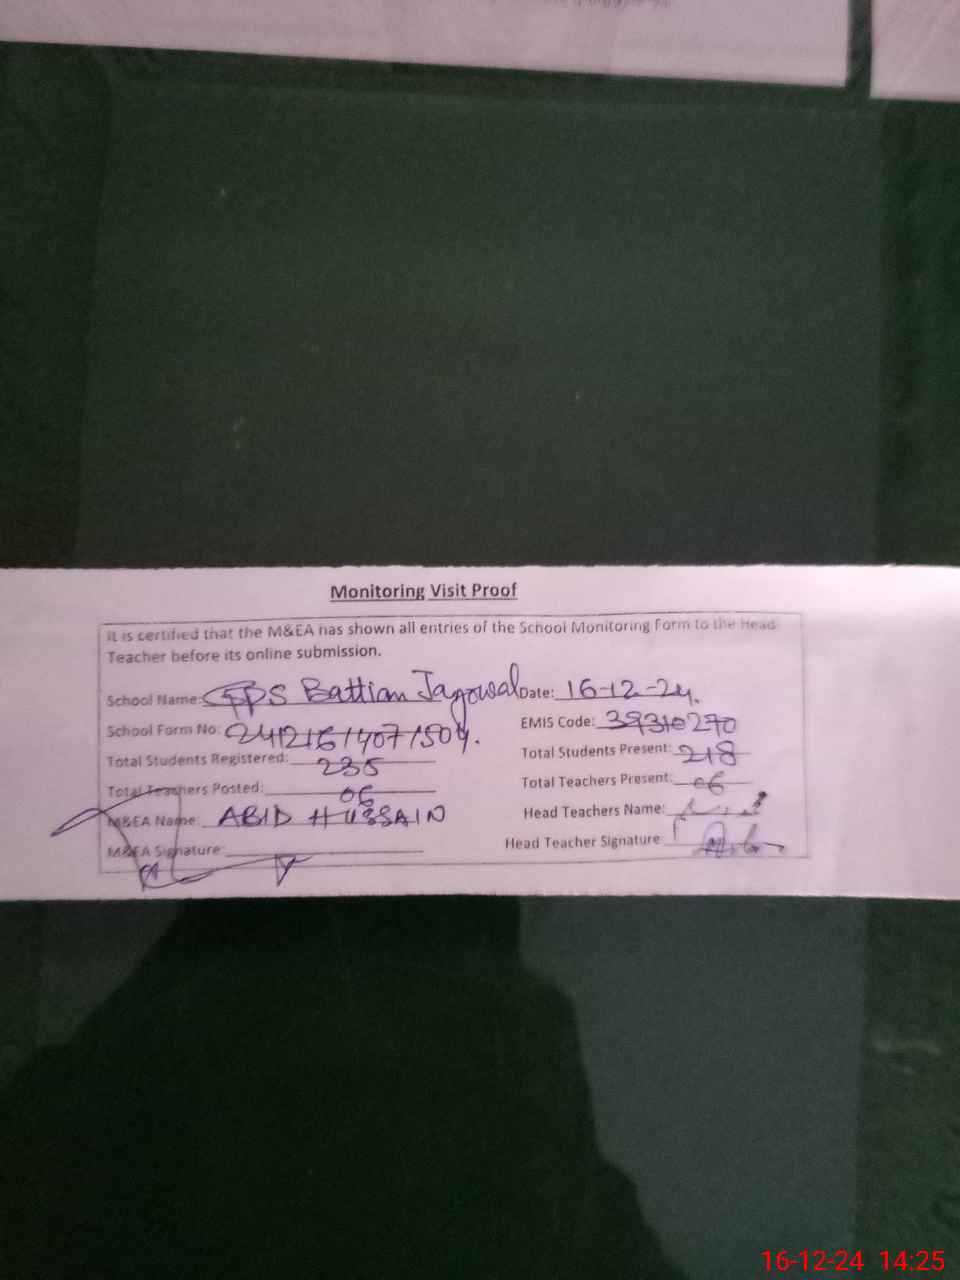 Monitoring Visit Proof
It is certified that the M&EA has shown all entries of the School Monitoring Form to the Head
Teacher before its online submission.
School Name: GPS Battian Jagowal Date: 16-12-24.
School Form No: EMIS Code: 39310270
Total Students Registered: 235 Total Students Present: 218
Total Teachers Posted: 06 Total Teachers Present: 06
M&EA Name: ABID HUSSAIN Head Teachers Name:
M&EA Signature: Head Teacher Signature
16-12-24 14:25